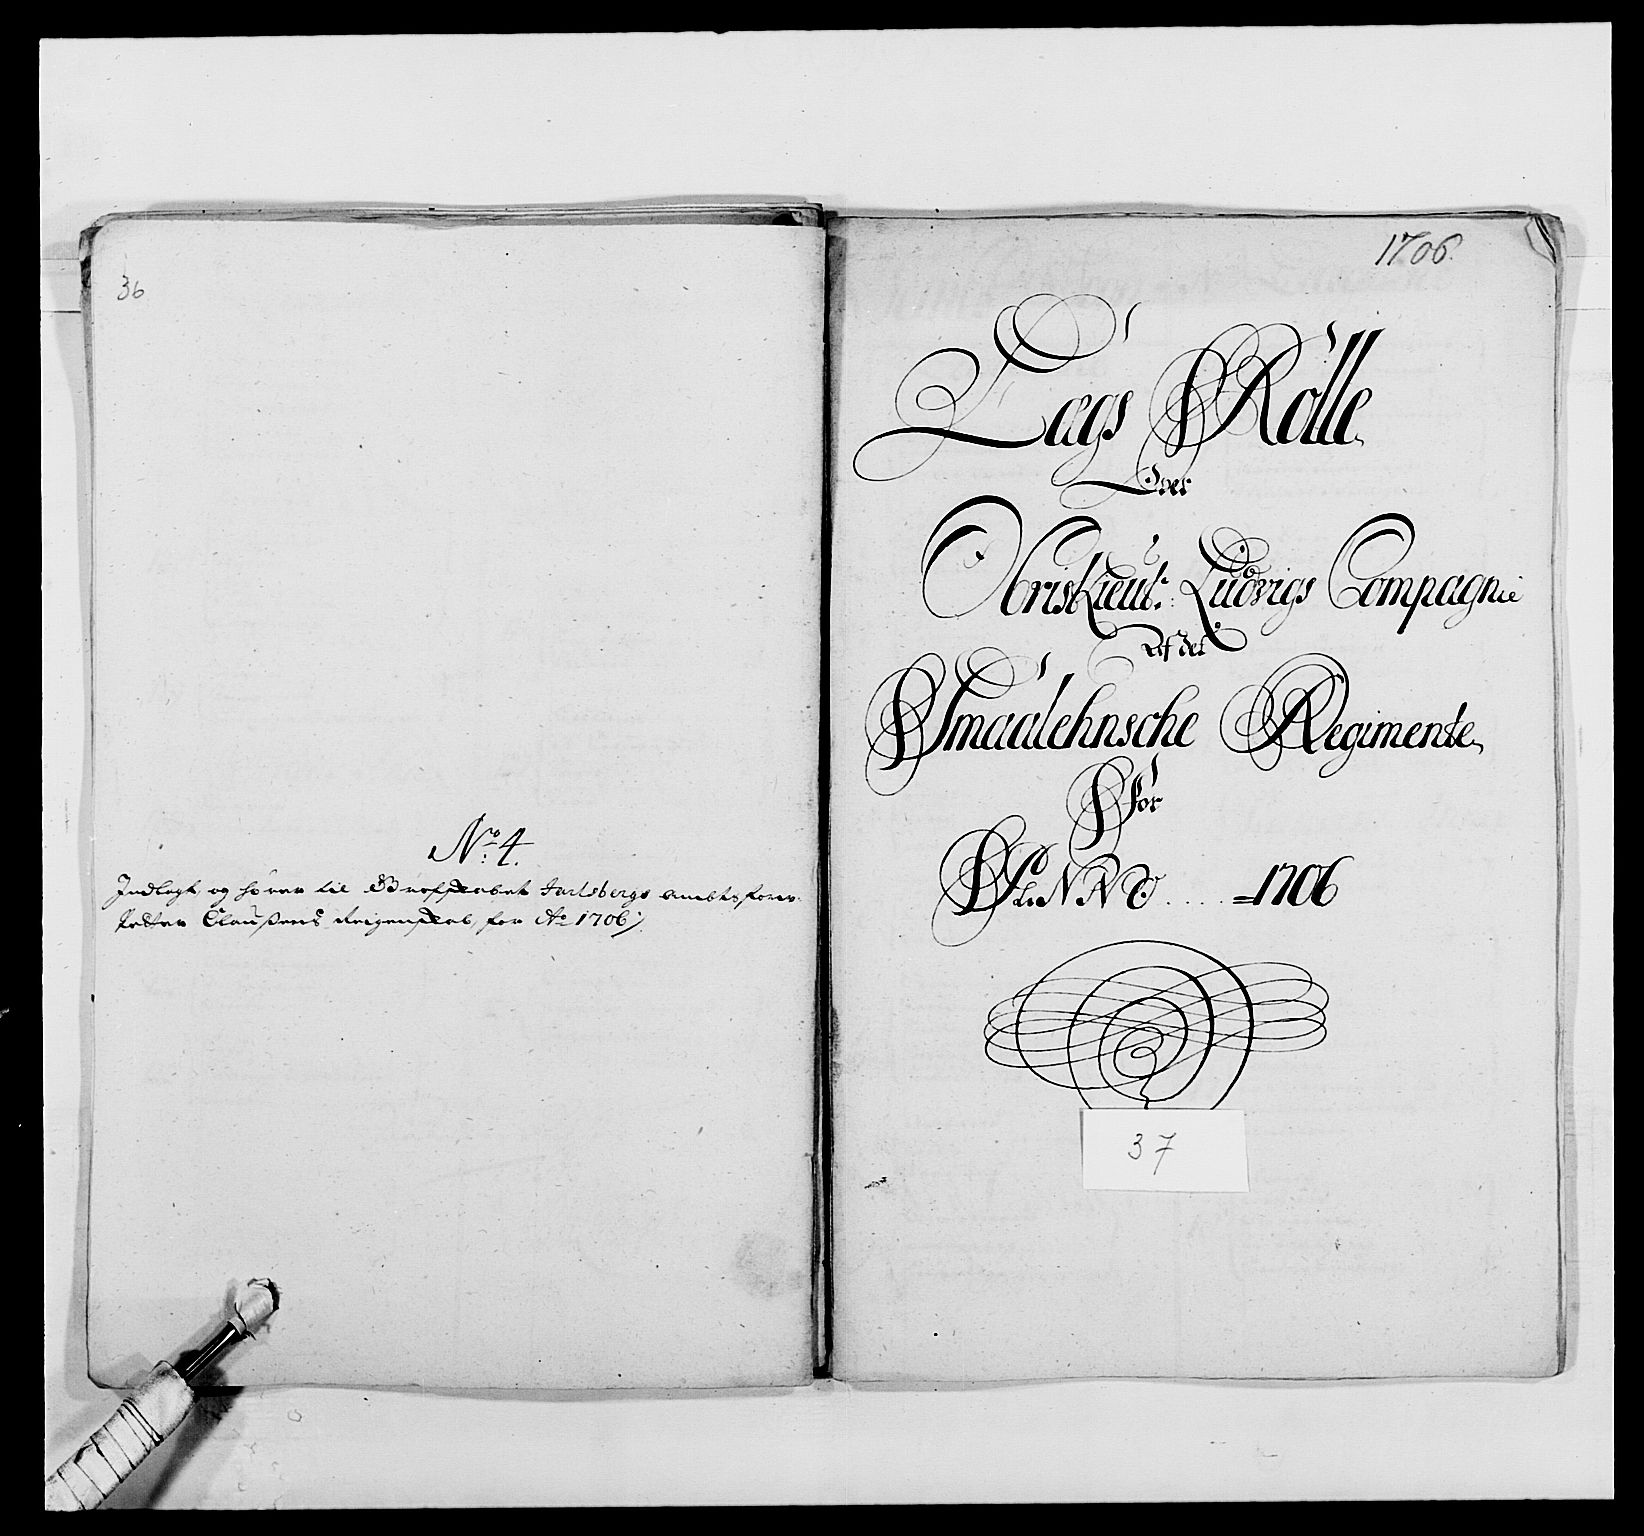 36
No 4.
Indlegt og hörer til Grefskabet Jarlsbergs ambtsforv:
Petter Claußens Reigenskab for Ao 1706
1706.
Lægs Rolle
Over
Obristlieut: Ludvigs Compagnie
Af det
Smaalehnsche Regimente
For
ANNO ..... 1706
37